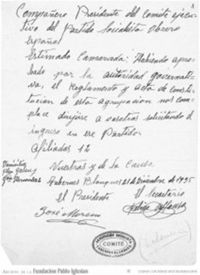 Compañero Presidente del Comité ejecu-
tivo del Partido Socialista Obrero
Español
Estimado Camarada: Habiendo apro-
bado por la autoridad gubernati-
va, el Reglamento y acta de consti-
tución de esta agrupación nos com-
place dirijirse a vosotros solicitando el
ingreso en ese Partido.
Afiliados 12
Vuestros y de la Causa
Tabernes Blanques 21 de Diciembre de 1935
El Presidente
El Secretario
José Moreno
COMITÉ
Fundación Pablo Iglesias